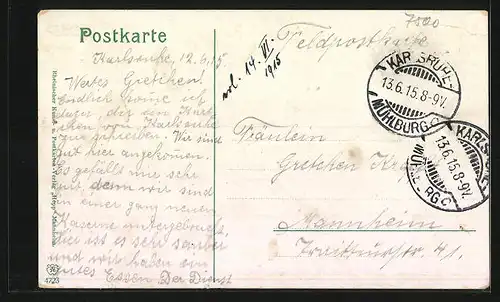 7500
Postkarte
Karlsruhe, 12.6.15.
Wertes Gretchen!
Endlich komme ich
dazu, dir ein Kärt-
chen von Karlsruhe
zuschreiben. Wir sind
gut hier angekommen.
Es gefällt uns sehr
gut, denn wir sind
in einer ganz neuen
Kaserne untergebracht,
hier ist es sehr sauber
und wir haben ein
gutes Essen. Der Dienst
erl. 14. VI.
1915
Feldpostkarte
KARLSRUHE-
13.6.15.8-9V.
MÜHLBURG C
KARLSRUHE-
13.6.15.8-9V.
MÜHLBURG C
Fräulein
Gretchen
Mannheim
Traitteurstr. 41.
4723